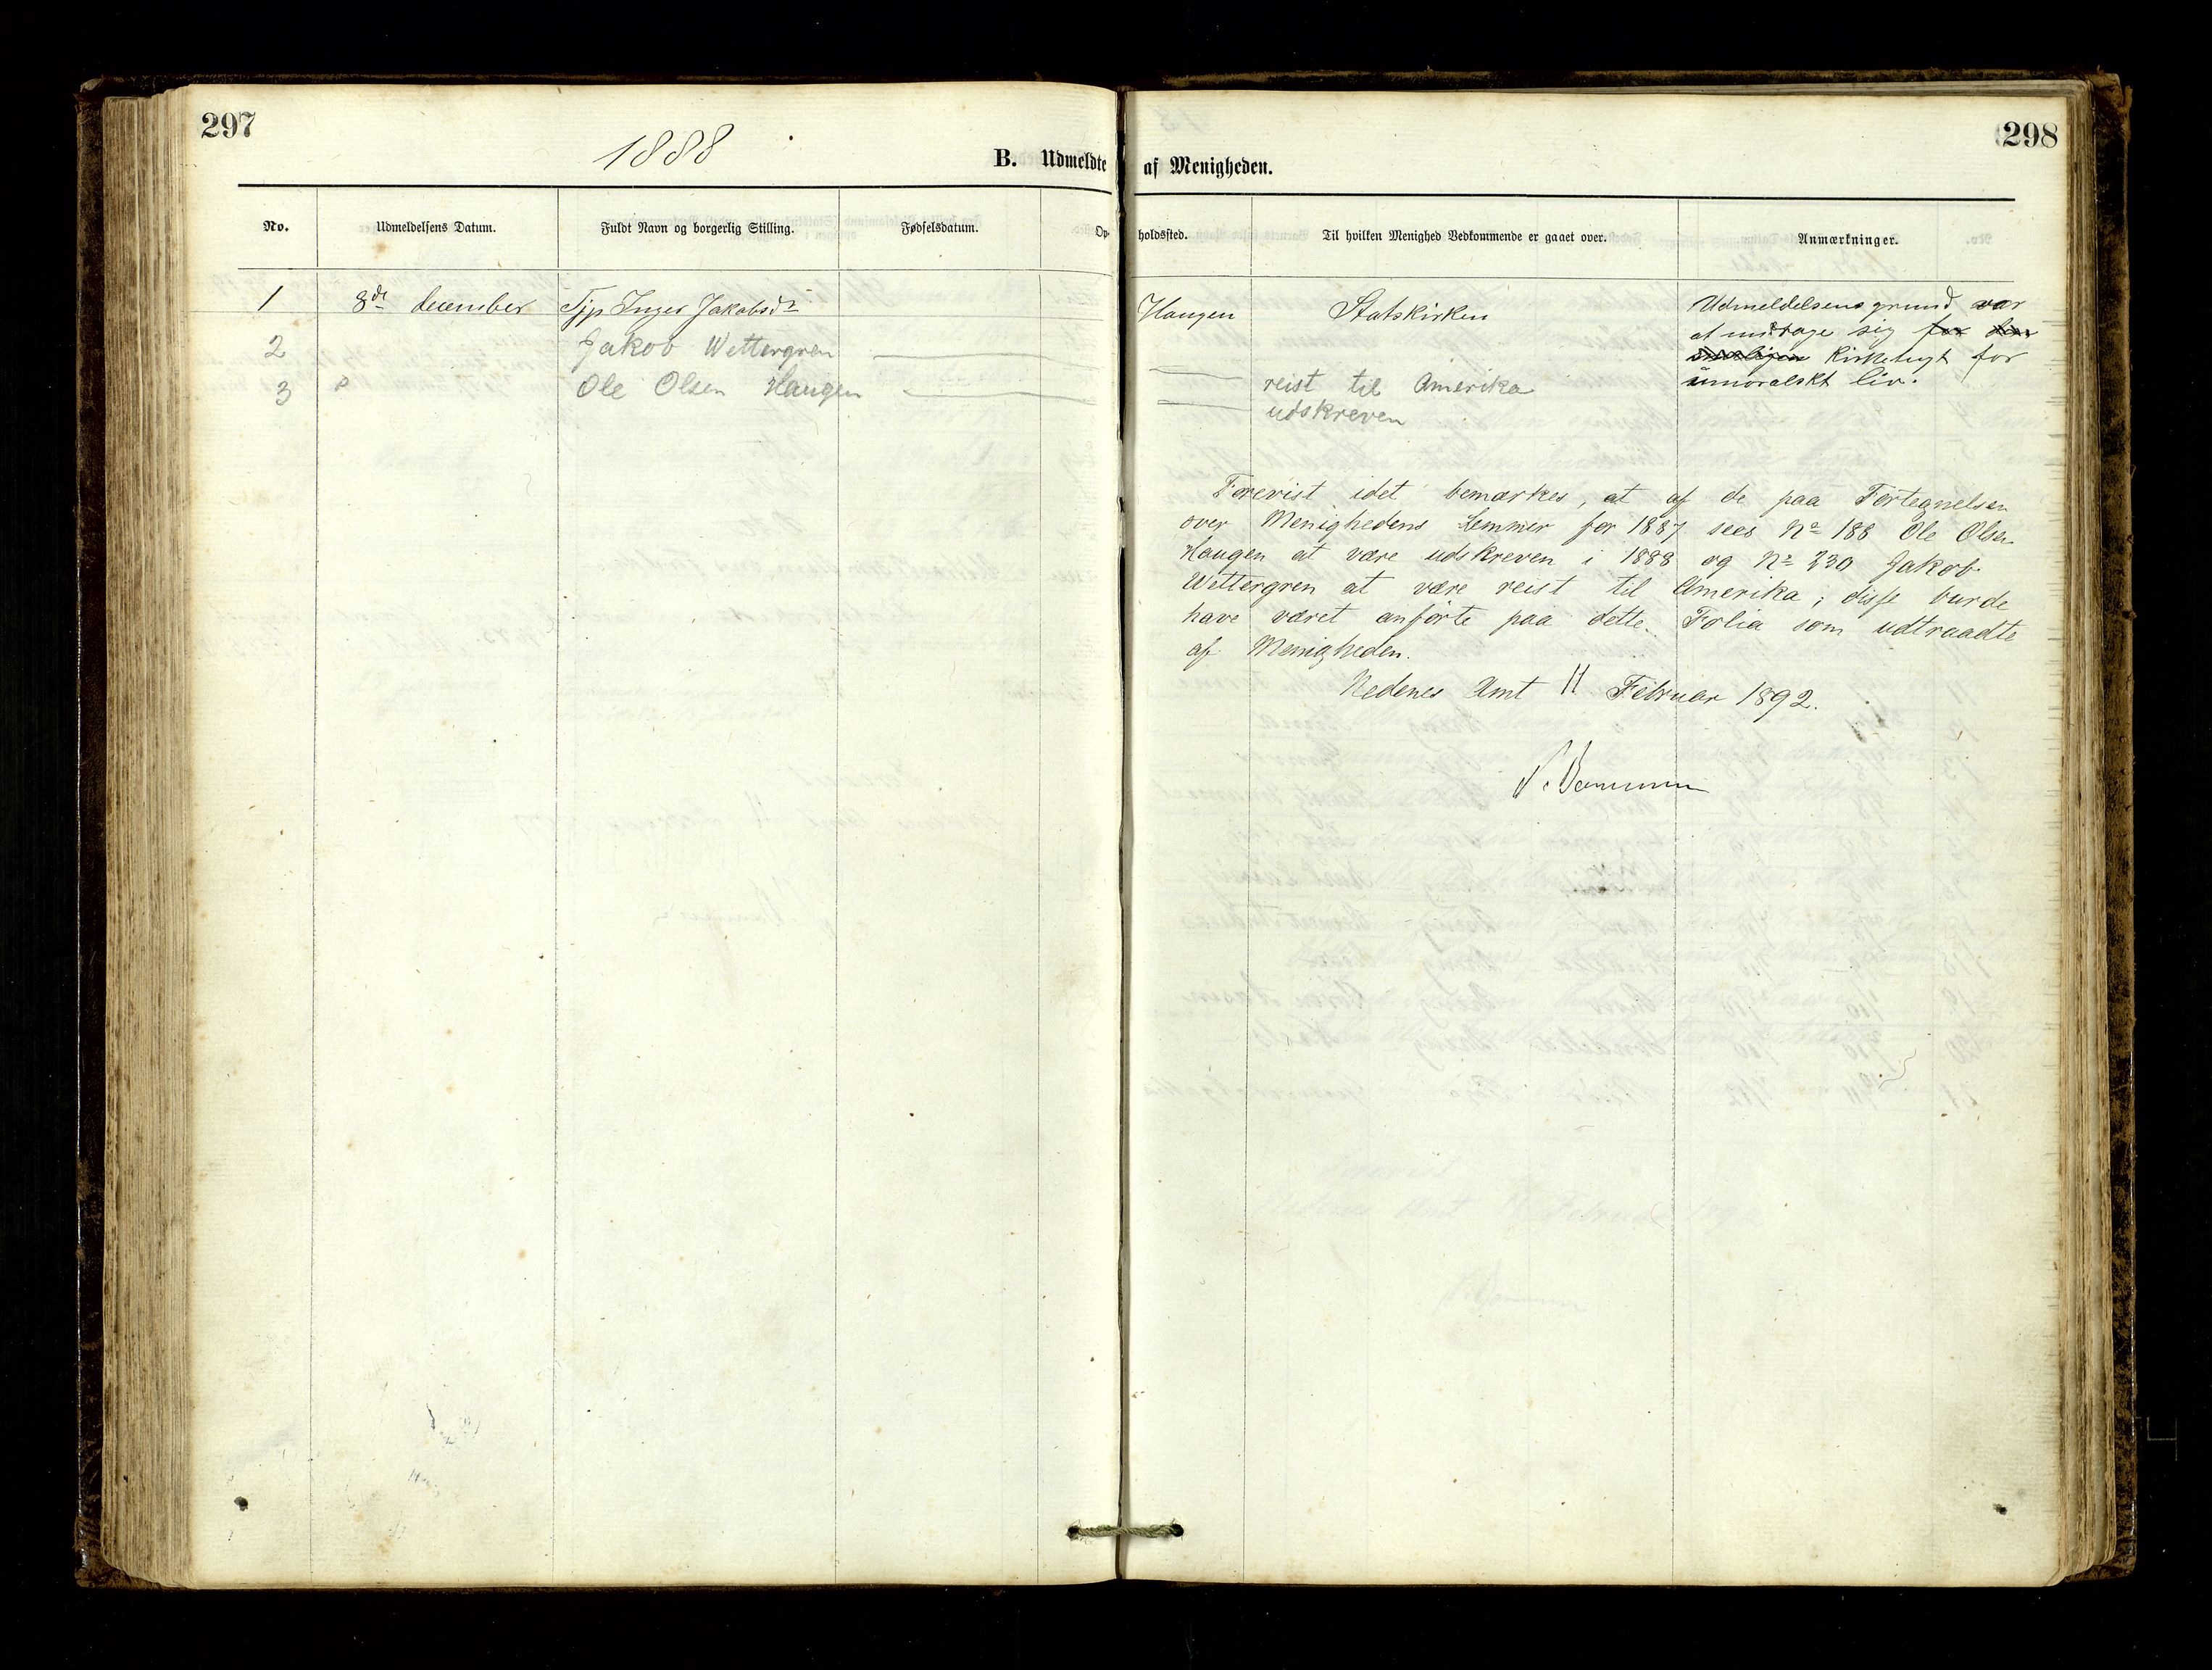 297
298
1888
B. Udmeldte af Menigheden.
No. Udmeldelsens Datum. Fuldt Navn og borgerlig Stilling. Fødselsdatum. Op- holdssted. Til hvilken Menighed Vedkommende er gaaet over. Anmærkninger.
1 8de december Tjp Inger Jakobsdr Haugen Statskirken Udmeldelsens grund var
at undtage sig for den
Kirketugt for
umoralskt liv.
2 Jakob Wettergren reist til Amerika
3 Ole Olsen Haugen udskreven
Forevist idet bemærkes, at af de paa Fortegnelsen
over Menighedens Lemmer for 1887 sees No 188 Ole Olsen
Haugen at være udskreven i 1888 og No 230 Jakob
Wettergren at være reist til Amerika; disse burde
have været anførte paa dette Folia som udtraadte
af Menigheden.
Nedenes Amt 11 Februar 1892.